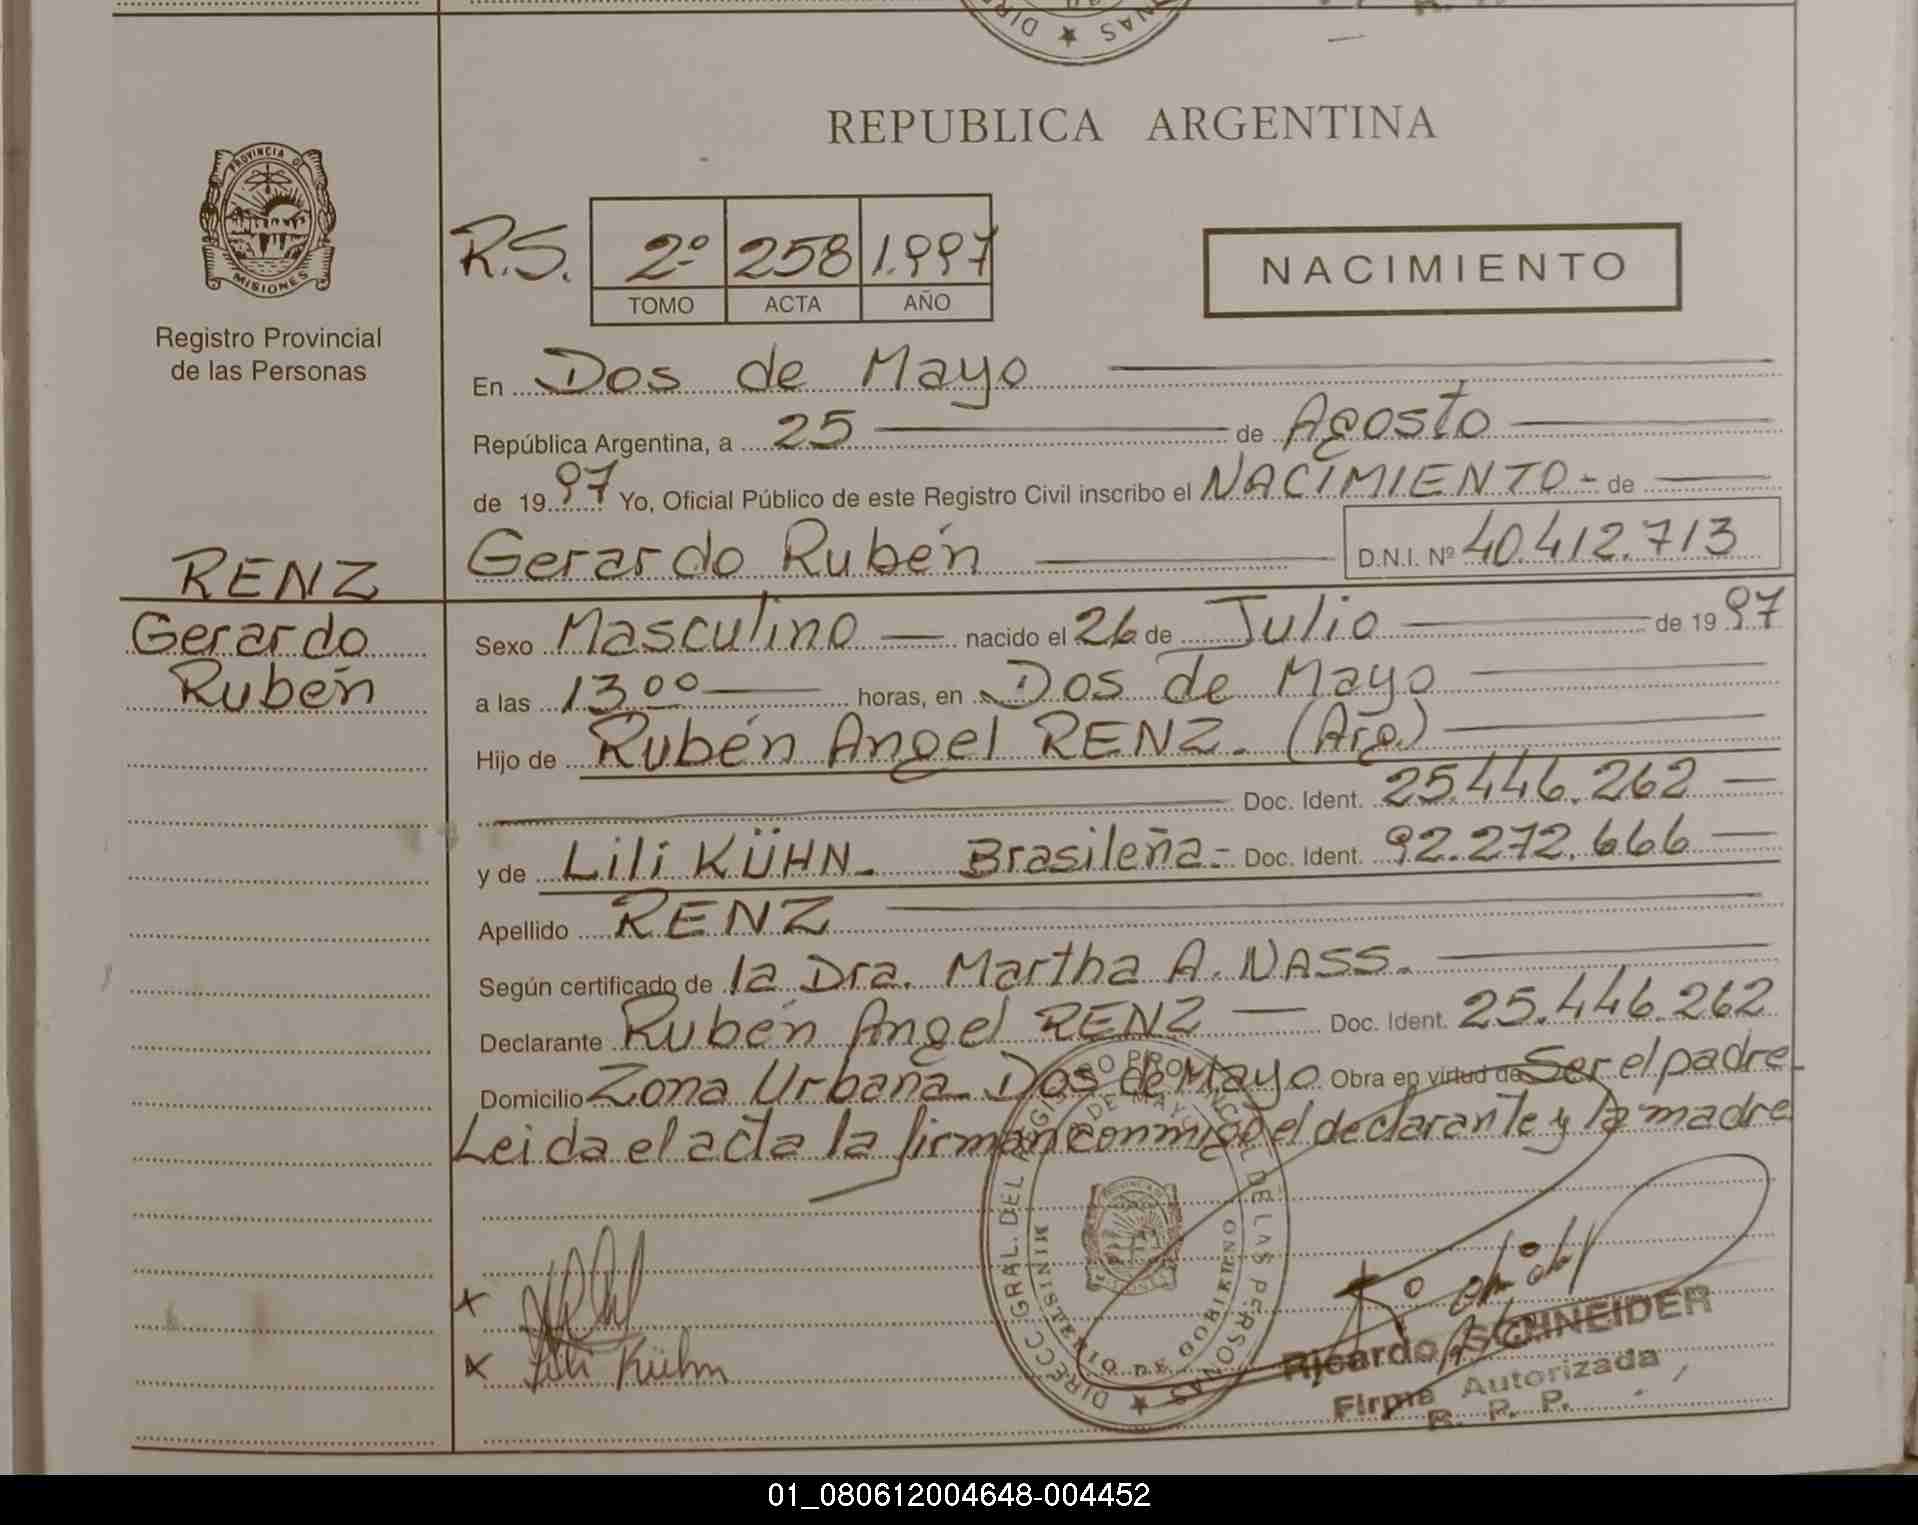 REPUBLICA ARGENTINA
PROVINCIA D
MISIONES
Registro Provincial
de las Personas
R.S. 2º 258 1.997
TOMO ACTA AÑO
NACIMIENTO
En Dos de Mayo
República Argentina, a 25 de Agosto
de 1997 Yo, Oficial Público de este Registro Civil inscribo el NACIMIENTO - de
Gerardo Rubén D.N.I. Nº 40.412.713
RENZ
Gerardo
Rubén
Sexo Masculino nacido el 26 de Julio de 1997
a las 13 00 horas, en Dos de Mayo
Hijo de Rubén Angel RENZ. (Arg.)
Doc. Ident. 25.446.262
y de Lili KÜHN. Brasileña- Doc. Ident. 92.272.666
Apellido RENZ
Según certificado de la Dra. Martha A. NASS.
Declarante Rubén Angel RENZ Doc. Ident. 25.446.262
Domicilio Zona Urbana. Dos de Mayo Obra en virtud de Ser el padre.
Leida el acta la firman conmigo el declarante y la madre
DIRECC. GRAL. DEL REGISTRO PROVINCIAL DE LAS PERSONAS
MINISTERIO DE GOBIERNO
DE MAYO
x
x Lili Kühn
Ricardo SCHNEIDER
Firma Autorizada
R. P. P.
01_080612004648-004452